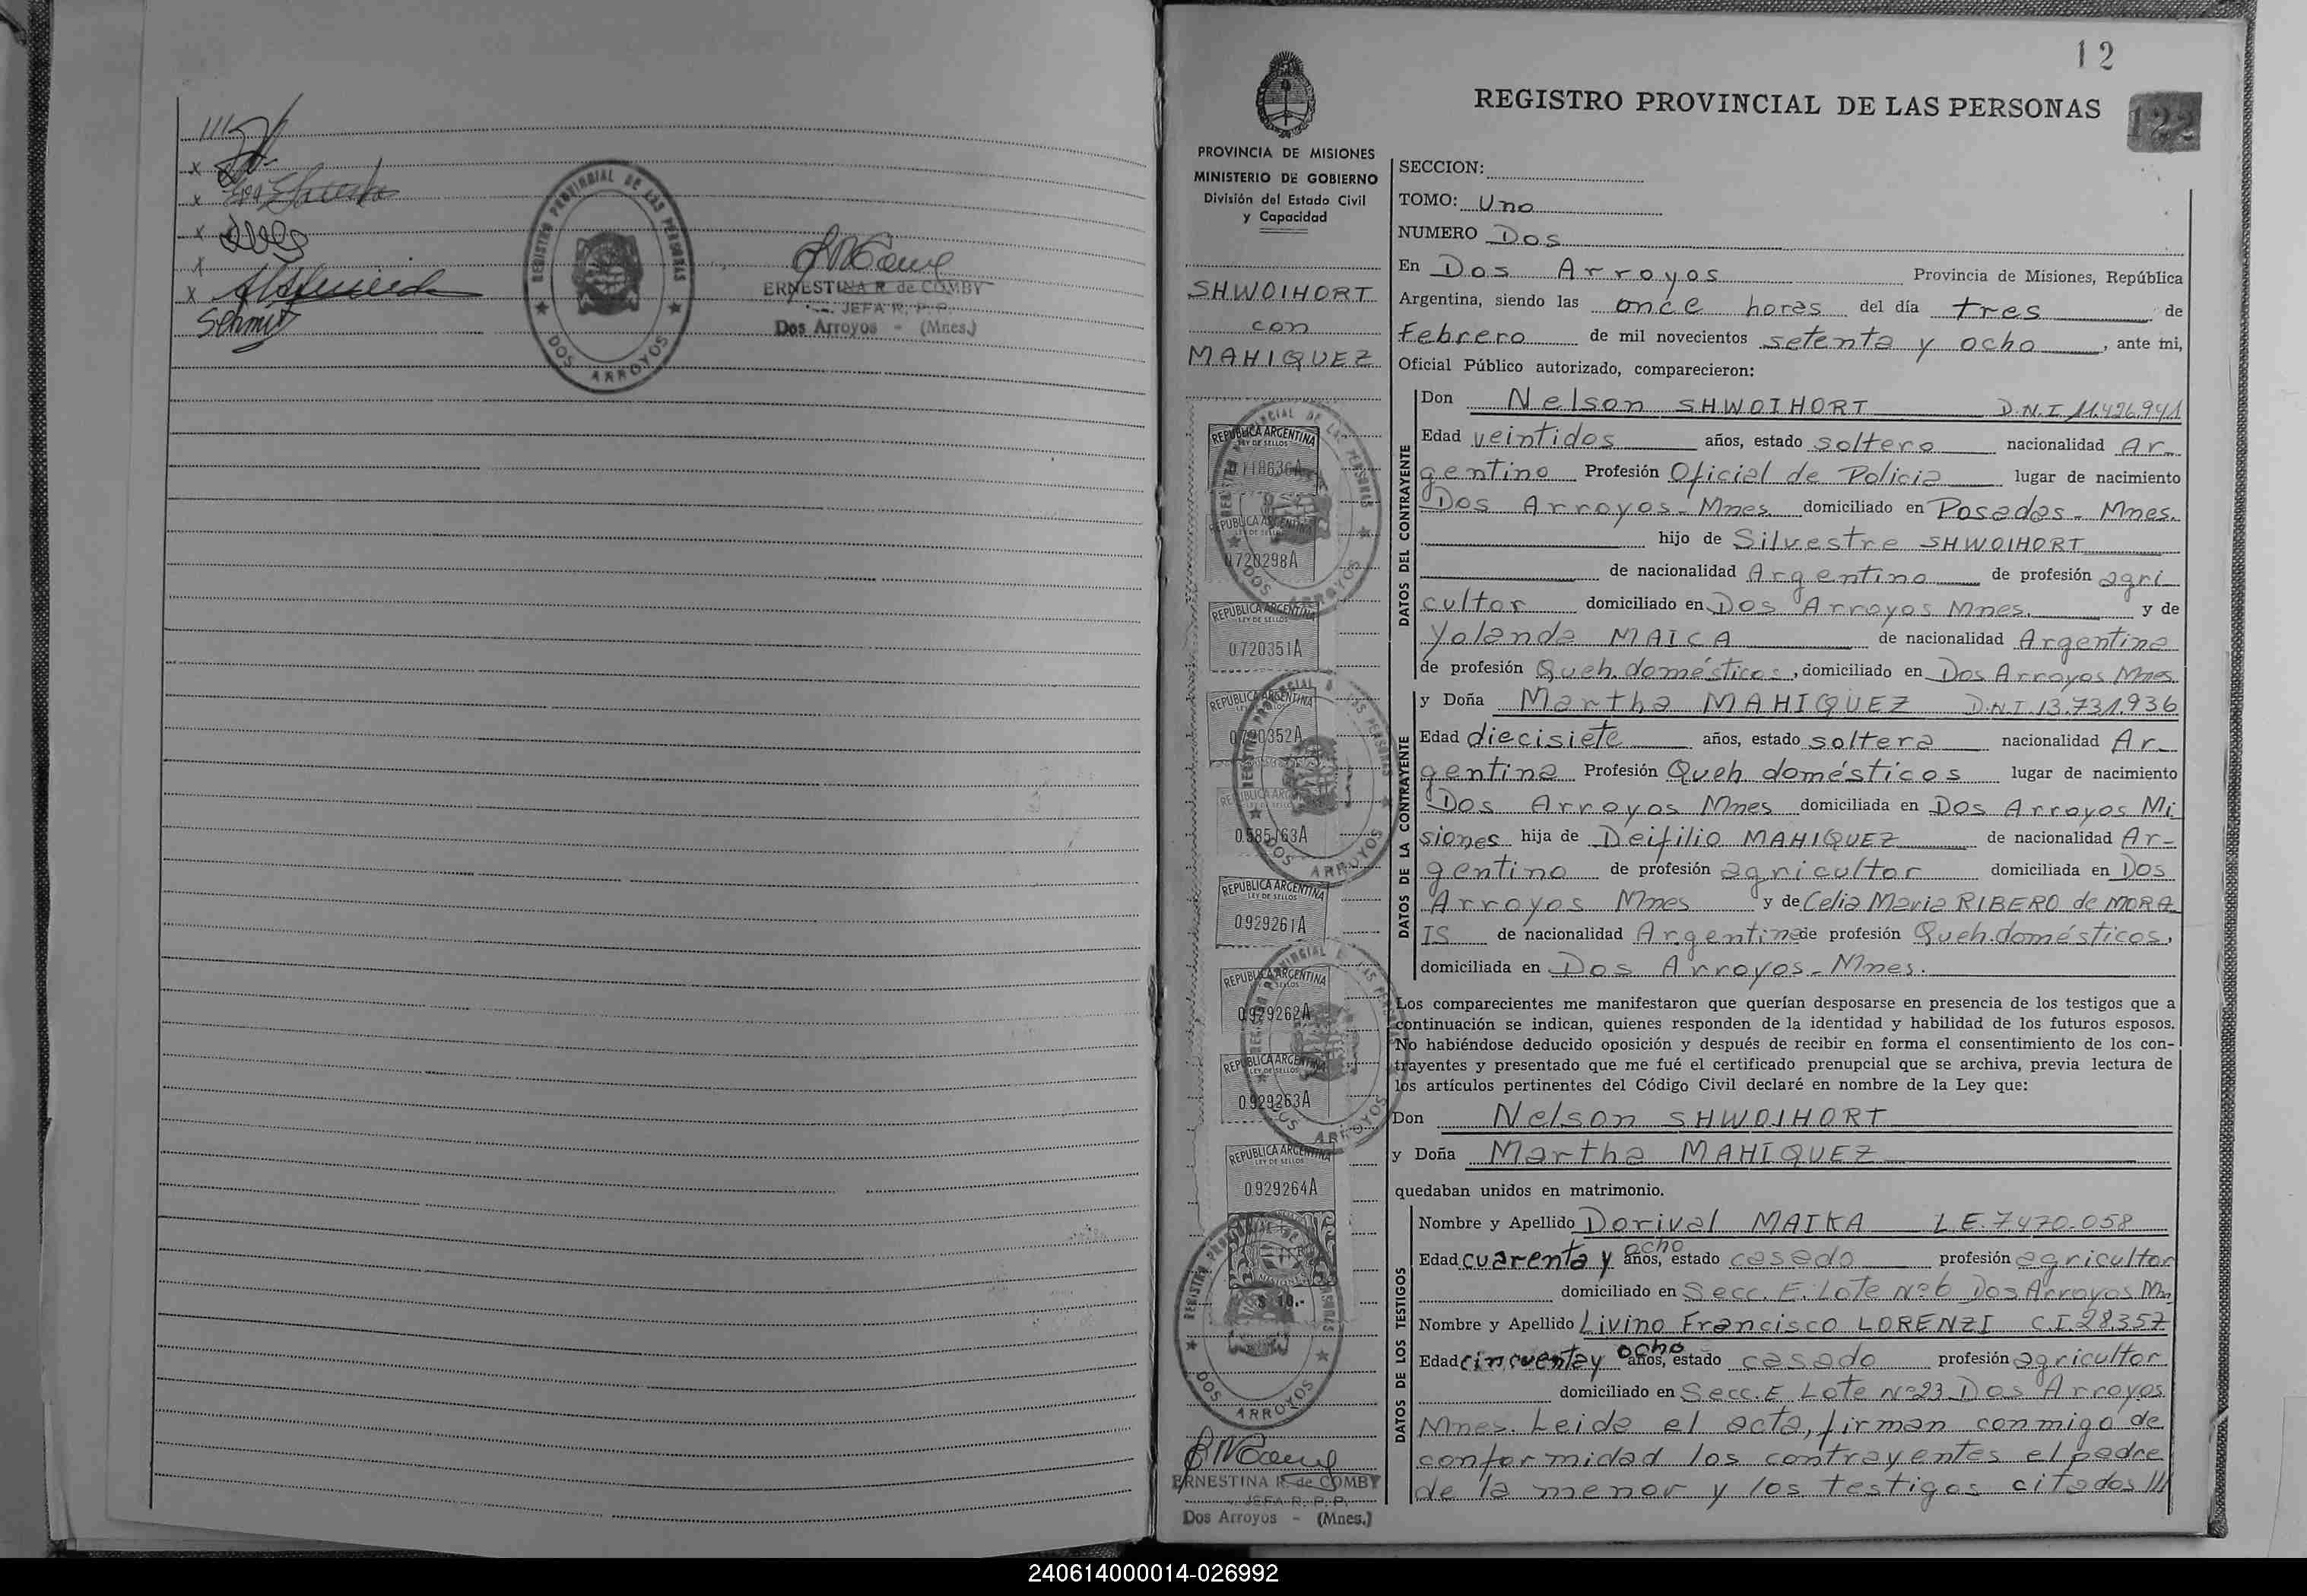 111
Schmit
REGISTRO PROVINCIAL DE LAS PERSONAS
DOS ARROYOS
ERNESTINA R. de COMBY
JEFA R. P. P.
Dos Arroyos - (Mnes.)
12
REGISTRO PROVINCIAL DE LAS PERSONAS
122
PROVINCIA DE MISIONES
MINISTERIO DE GOBIERNO
División del Estado Civil
y Capacidad
SHWOIHORT
con
MAHIQUEZ
REPUBLICA ARGENTINA
LEY DE SELLOS
0.718636A
REPUBLICA ARGENTINA
LEY DE SELLOS
0.720298A
REPUBLICA ARGENTINA
LEY DE SELLOS
0.720351A
REPUBLICA ARGENTINA
LEY DE SELLOS
0.720352A
REPUBLICA ARGENTINA
LEY DE SELLOS
0.585163A
REPUBLICA ARGENTINA
LEY DE SELLOS
0.929261A
REPUBLICA ARGENTINA
LEY DE SELLOS
0.929262A
REPUBLICA ARGENTINA
LEY DE SELLOS
0.929263A
REPUBLICA ARGENTINA
LEY DE SELLOS
0.929264A
$ 10.-
DOS ARROYOS
ERNESTINA R. de COMBY
JEFA R. P. P.
Dos Arroyos - (Mnes.)
SECCION:
TOMO: Uno
NUMERO Dos
En Dos Arroyos Provincia de Misiones, República
Argentina, siendo las once horas del día tres de
Febrero de mil novecientos setenta y ocho, ante mi,
Oficial Público autorizado, comparecieron:
DATOS DEL CONTRAYENTE
Don Nelson SHWOIHORT D.N.I 11.426.941
Edad veintidos años, estado soltero nacionalidad Ar-
gentino Profesión Oficial de Policia lugar de nacimiento
Dos Arroyos - Mnes domiciliado en Posadas - Mnes.
hijo de Silvestre SHWOIHORT
de nacionalidad Argentino de profesión agri
cultor domiciliado en Dos Arroyos Mnes. y de
Yolanda MAICA de nacionalidad Argentina
de profesión Queh. domésticos, domiciliado en Dos Arroyos Mnes.
DATOS DE LA CONTRAYENTE
y Doña Martha MAHIQUEZ D.N.I. 13.731.936
Edad diecisiete años, estado soltera nacionalidad Ar-
gentina Profesión Queh domésticos lugar de nacimiento
Dos Arroyos Mnes domiciliada en Dos Arroyos Mi
siones hija de Deifilio MAHIQUEZ de nacionalidad Ar-
gentino de profesión agricultor domiciliada en Dos
Arroyos Mnes y de Celia Maria RIBERO de MORA
IS de nacionalidad Argentina de profesión Queh. domésticos,
domiciliada en Dos Arroyos - Mnes.
Los comparecientes me manifestaron que querían desposarse en presencia de los testigos que a
continuación se indican, quienes responden de la identidad y habilidad de los futuros esposos.
No habiéndose deducido oposición y después de recibir en forma el consentimiento de los con-
trayentes y presentado que me fué el certificado prenupcial que se archiva, previa lectura de
los artículos pertinentes del Código Civil declaré en nombre de la Ley que:
Don Nelson SHWOIHORT
y Doña Martha MAHIQUEZ
quedaban unidos en matrimonio.
DATOS DE LOS TESTIGOS
Nombre y Apellido Dorival MAIKA L.E. 7.470.058
Edad cuarenta y ocho años, estado casado profesión agricultor
domiciliado en Secc. E. Lote Nº 6 Dos Arroyos Mn
Nombre y Apellido Livino Francisco LORENZI C.I. 28.357
Edad cincuenta y ocho años, estado casado profesión agricultor
domiciliado en Secc. E Lote Nº 23 Dos Arroyos
Mnes. Leida el acta, firman conmigo de
conformidad los contrayentes el padre
de la menor y los testigos citados ///
240614000014-026992